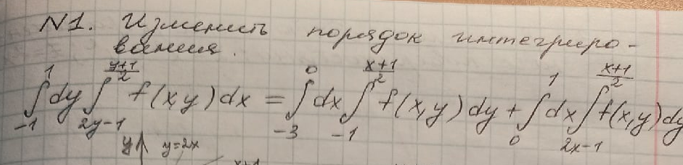 N1. Изменить порядок интегриро-
вания.
∫_{-1}^{1} dy ∫_{2y-1}^{\frac{y+1}{2}} f(x,y)dx = ∫_{-3}^{0} dx ∫_{-1}^{\frac{x+1}{2}} f(x,y)dy + ∫_{0}^{1} dx ∫_{2x-1}^{\frac{x+1}{2}} f(x,y)dy
y y=2x